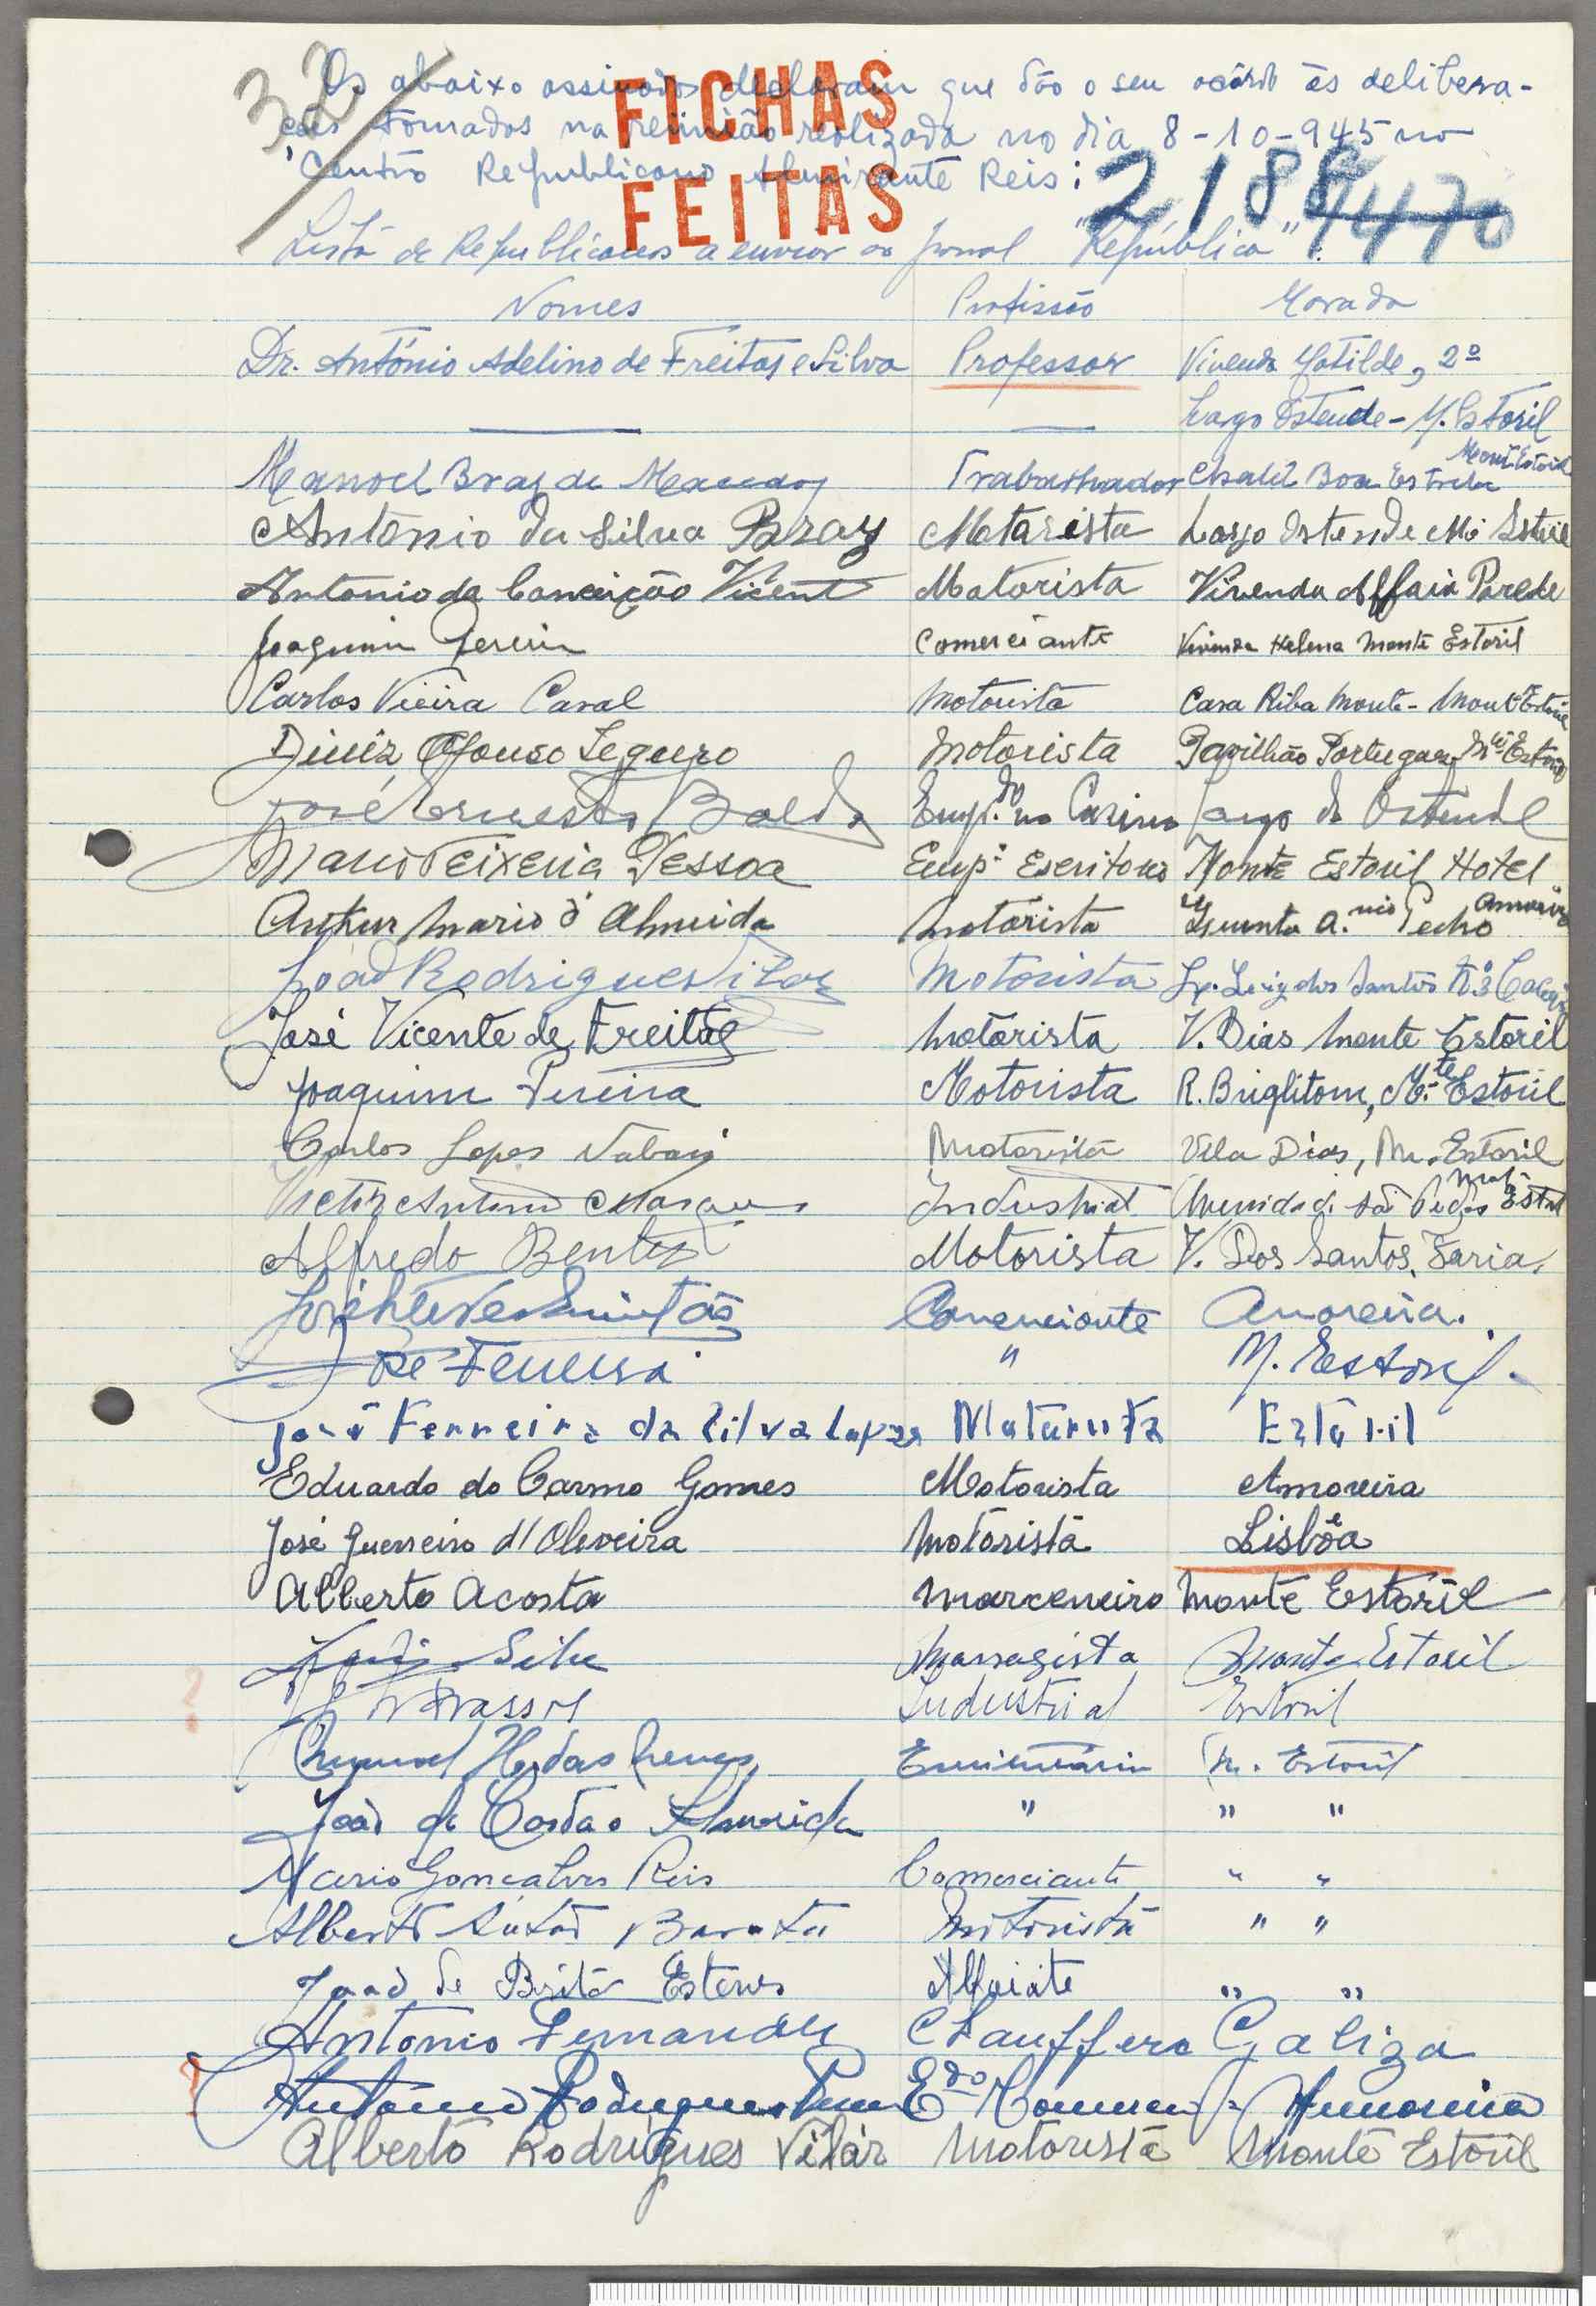 32
Os abaixo assinados declaram que dão o seu acôrdo às delibera-
ções tomadas na reünião realizada no dia 8-10-945 no
Centro Republicano Almirante Reis:
FICHAS
FEITAS
2188 7470
Lista de Republicanos a enviar ao jornal "República":
Nomes Profissão Morada
Dr. António Adelino de Freitas e Silva Professor Vivenda Matilde, 2º
Largo Ostende - M. Estoril
Manoel Braz de Trabalhador Chalet Boa Estrela Mont. Estoril
Antonio da Silva Braz Motarista Largo Ostende Mt. Estoril
Antonio da Conceição Vicente Motorista Vivenda Parede
Joaquim Pereira Comerciante Vivenda Helena Monte Estoril
Carlos Vieira Caval Motorista Casa Riba Monte - Mont Estoril
Diniz Afonso Seguro Motorista Pavilhão Portugues Mte Estoril
José Ernesto Emp.do no Casino Largo de Ostende
Mario Teixeira Pessoa Emp. Escritorio Monte Estoril Hotel
Arthur Mario d'Almeida Motorista Quinta A.nio Pecho Amoreira
João Rodrigues Vilar Motorista Lg. Luiz dos Santos Nº 3
José Vicente de Freitas Motorista V. Dias Monte Estoril
Joaquim Pereira Motorista R. Briglitom, M.te Estoril
Carlos Lopes Motorista Vila Dias, M. Estoril
Victor Antonio Marques Industrial Avenida de São Pedro Mont Estoril
Alfredo Bentes Motorista V. Dos Santos. Faria.
José Comerciante Amoreira.
José Ferreira " M. Estoril.
José Ferreira da Silva Lopes Muturista Estúril
Eduardo do Carmo Gomes Motorista Amoreira
José Guerreiro d'Oliveira Motorista Lisbôa
Alberto Acosta Marceneiro Monte Estoril
Silva Massagista Monte Estoril
Industrial Estoril
Manuel M. Estoril
João da Costa e Almeida " " "
Mario Gonçalves Reis Comerciante " "
Alberto Barata Motorista " "
João de Brito Esteves Alfaiate " "
Antonio Fernandes Chauffere Galiza
António Rodrigues E.do Amoreira
Alberto Rodrigues Vilár Motorista Monte Estoril